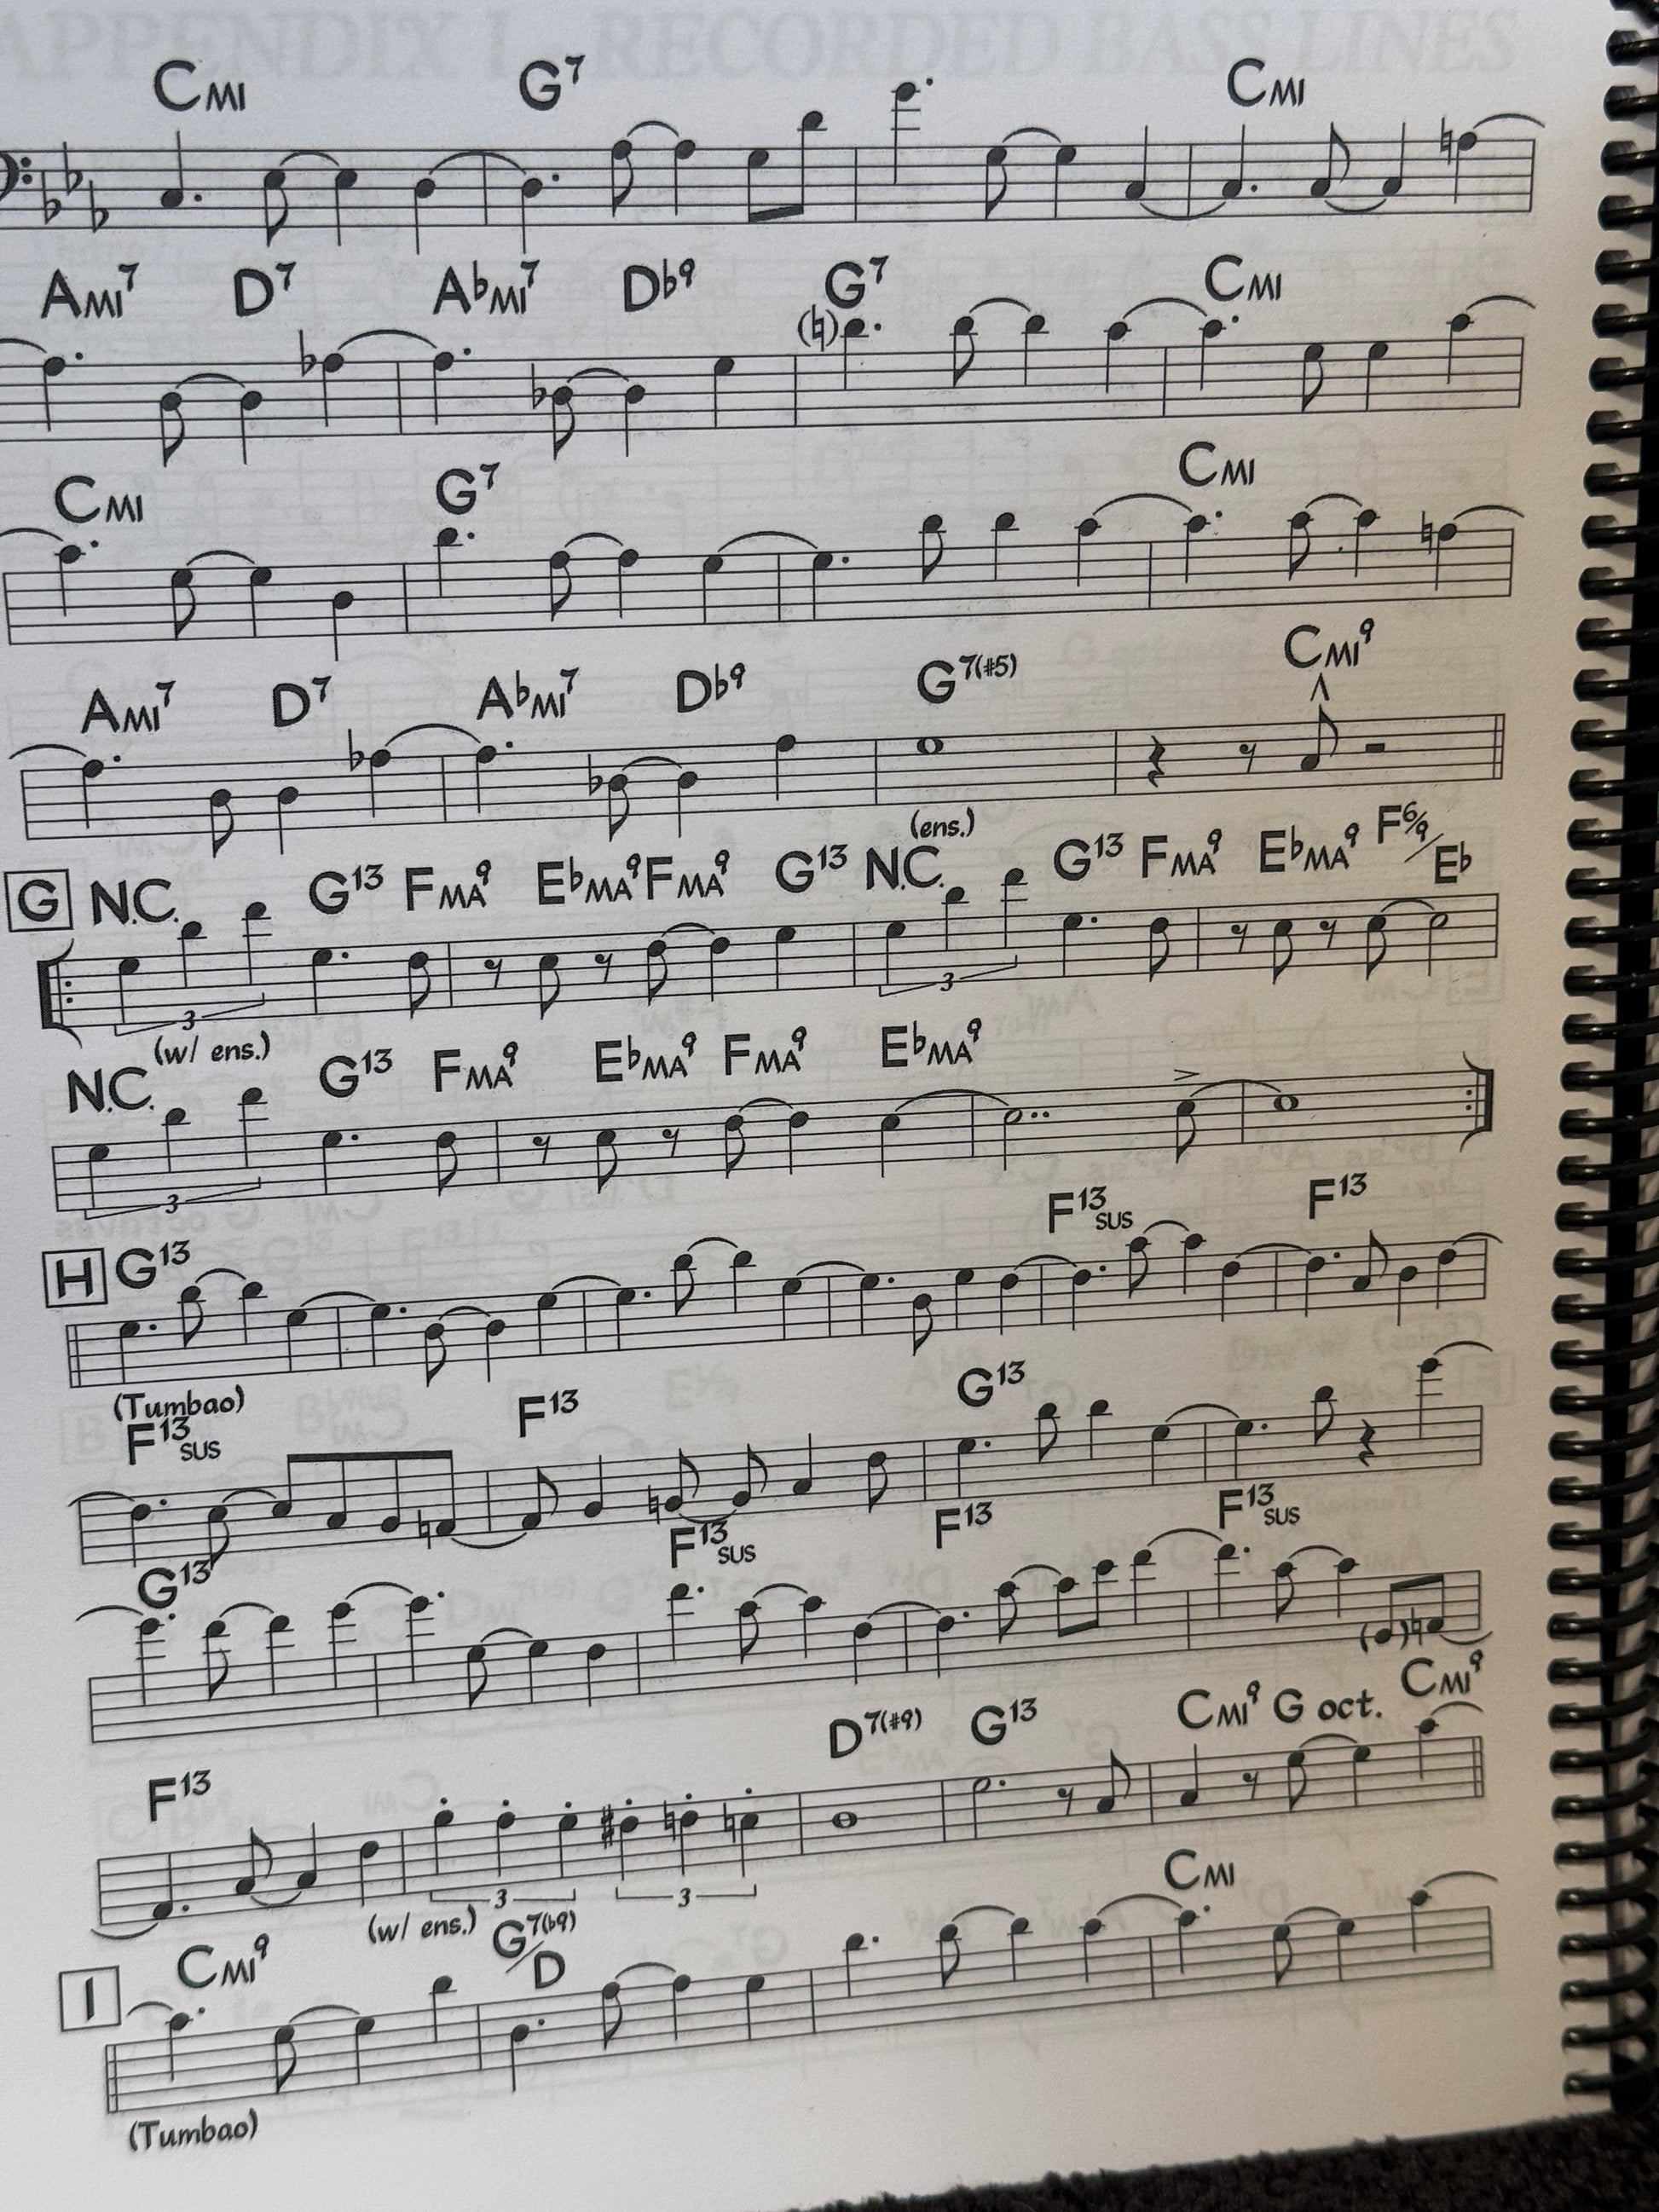 APPENDIX I RECORDED BASS LINES
CMI G7 CMI
AMI7 D7 A♭MI7 D♭9 G7 CMI
(♮)
CMI G7 CMI
AMI7 D7 A♭MI7 D♭9 G7(#5) CMI9
(ens.)
G N.C. G13 FMA9 E♭MA9 FMA9 G13 N.C. G13 FMA9 E♭MA9 F6/9/E♭
3 3
(w/ ens.)
N.C. G13 FMA9 E♭MA9 FMA9 E♭MA9
3
H G13 F13SUS F13
(Tumbao)
F13SUS F13 G13
G13 F13SUS F13 F13SUS
F13 D7(#9) G13 CMI9 G oct. CMI9
3 3
(w/ ens.)
I CMI9 G7(♭9)/D CMI
(Tumbao)